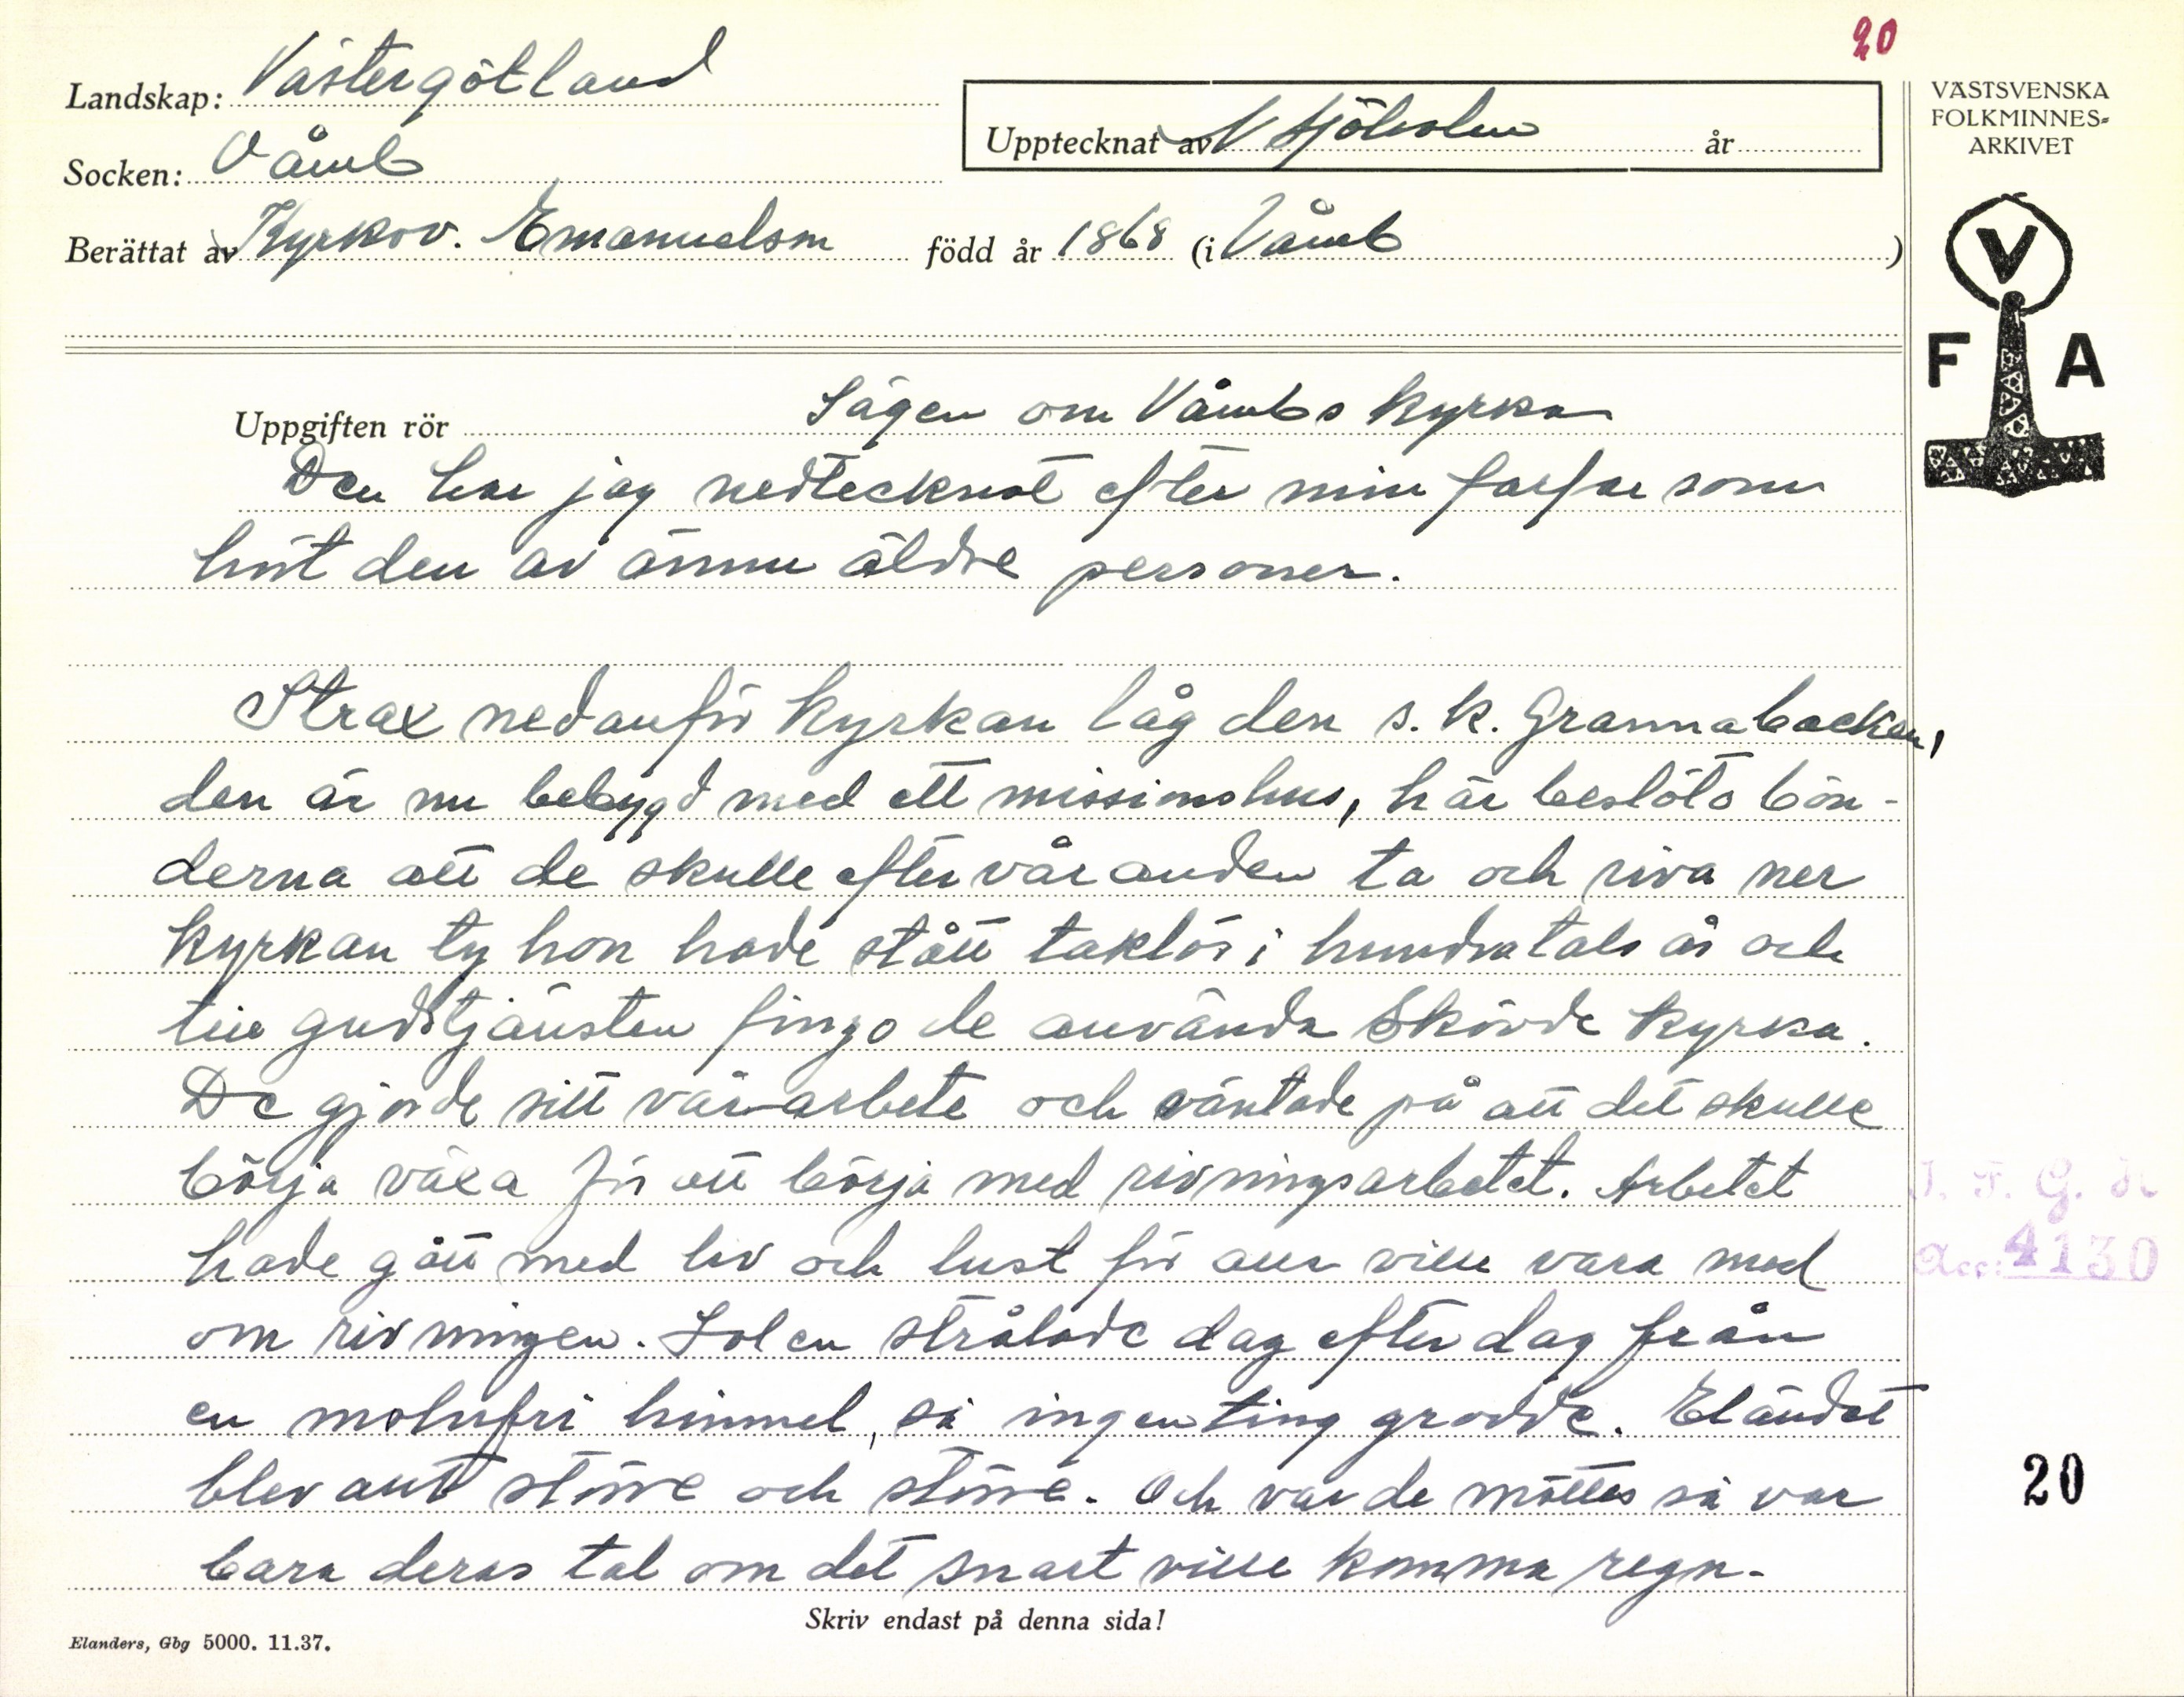 20
Landskap: Västergötland
Socken: Våmb
Upptecknat av N Hjöholm år
Berättat av Kyrkov. Emanuelson född år 1868 (i Våmb)
VÄSTSVENSKA
FOLKMINNES=
ARKIVET
V
F A
Uppgiften rör Sägen om Våmbs kyrka
Den har jag nedtecknat efter min farfar som
hört den av ännu äldre personer.
Strax nedanför kyrkan låg den s.k. Grannabacken,
den är nu bebygd med ett missionshus, här beslöto bön-
derna att de skulle efter våranden ta och riva ner
kyrkan ty hon hade stått taklös i hundratals år och
till gudstjänsten fingo de använda Skövde kyrka.
De gjorde sitt vårarbete och väntade på att det skulle
börja växa för att börja med rivningsarbetet. Arbetet
hade gått med liv och lust för alla ville vara med
om rivningen. Solen strålade dag efter dag från
en molnfri himmel, så ingenting grodde. Eländet
blev allt större och större. Och var de möttes så var
bara deras tal om det snart ville komma regn.
I. F. G. H
Acc: 4130
20
Skriv endast på denna sida!
Elanders, Gbg 5000. 11.37.